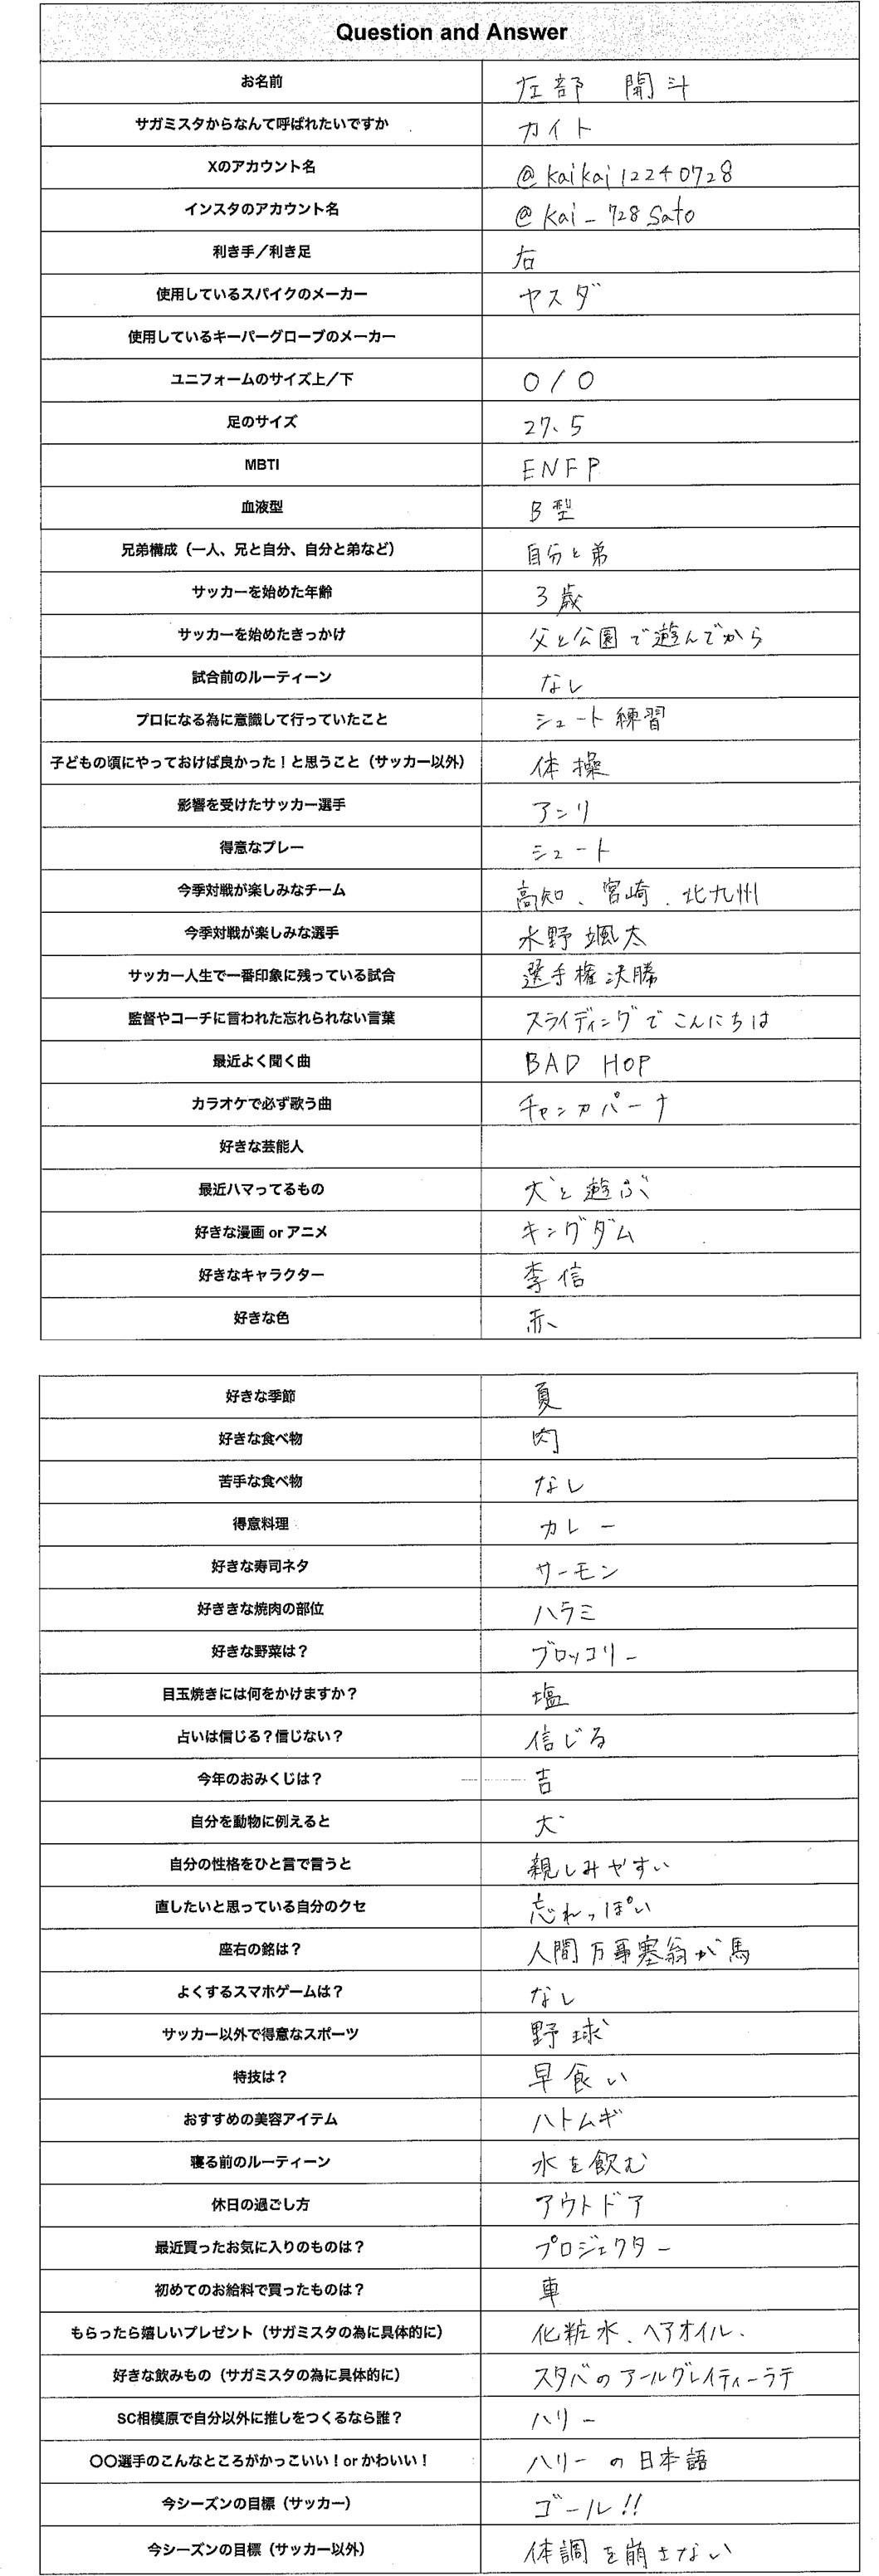 Question and Answer
お名前 左部 開斗
サガミスタからなんて呼ばれたいですか カイト
Xのアカウント名 @kaikai12240728
インスタのアカウント名 @kai_728sato
利き手／利き足 右
使用しているスパイクのメーカー ヤスダ
使用しているキーパーグローブのメーカー
ユニフォームのサイズ上／下 O / O
足のサイズ 27.5
MBTI ENFP
血液型 B型
兄弟構成（一人、兄と自分、自分と弟など） 自分と弟
サッカーを始めた年齢 3歳
サッカーを始めたきっかけ 父と公園で遊んでから
試合前のルーティーン なし
プロになる為に意識して行っていたこと シュート練習
子どもの頃にやっておけば良かった！と思うこと（サッカー以外） 体操
影響を受けたサッカー選手 アンリ
得意なプレー シュート
今季対戦が楽しみなチーム 高知、宮崎、北九州
今季対戦が楽しみな選手 水野颯太
サッカー人生で一番印象に残っている試合 選手権決勝
監督やコーチに言われた忘れられない言葉 スライディングでこんにちは
最近よく聞く曲 BAD HOP
カラオケで必ず歌う曲 チャンカパーナ
好きな芸能人
最近ハマってるもの 犬と遊ぶ
好きな漫画 or アニメ キングダム
好きなキャラクター 李信
好きな色 赤
好きな季節 夏
好きな食べ物 肉
苦手な食べ物 なし
得意料理 カレー
好きな寿司ネタ サーモン
好ききな焼肉の部位 ハラミ
好きな野菜は？ ブロッコリー
目玉焼きには何をかけますか？ 塩
占いは信じる？信じない？ 信じる
今年のおみくじは？ 吉
自分を動物に例えると 犬
自分の性格をひと言で言うと 親しみやすい
直したいと思っている自分のクセ 忘れっぽい
座右の銘は？ 人間万事塞翁が馬
よくするスマホゲームは？ なし
サッカー以外で得意なスポーツ 野球
特技は？ 早食い
おすすめの美容アイテム ハトムギ
寝る前のルーティーン 水を飲む
休日の過ごし方 アウトドア
最近買ったお気に入りのものは？ プロジェクター
初めてのお給料で買ったものは？ 車
もらったら嬉しいプレゼント（サガミスタの為に具体的に） 化粧水、ヘアオイル、
好きな飲みもの（サガミスタの為に具体的に） スタバのアールグレイティーラテ
SC相模原で自分以外に推しをつくるなら誰？ ハリー
〇〇選手のこんなところがかっこいい！or かわいい！ ハリーの日本語
今シーズンの目標（サッカー） ゴール!!
今シーズンの目標（サッカー以外） 体調を崩さない